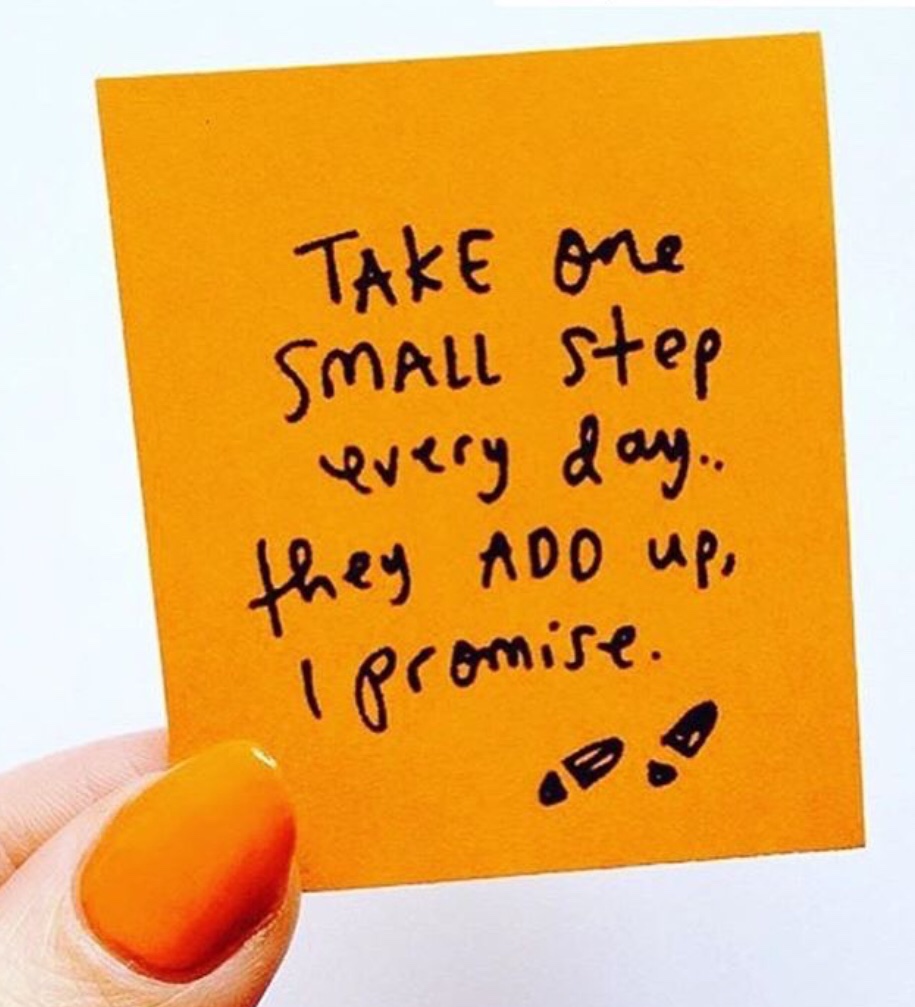 TAKE one
SMALL step
every day..
they ADD up,
I promise.